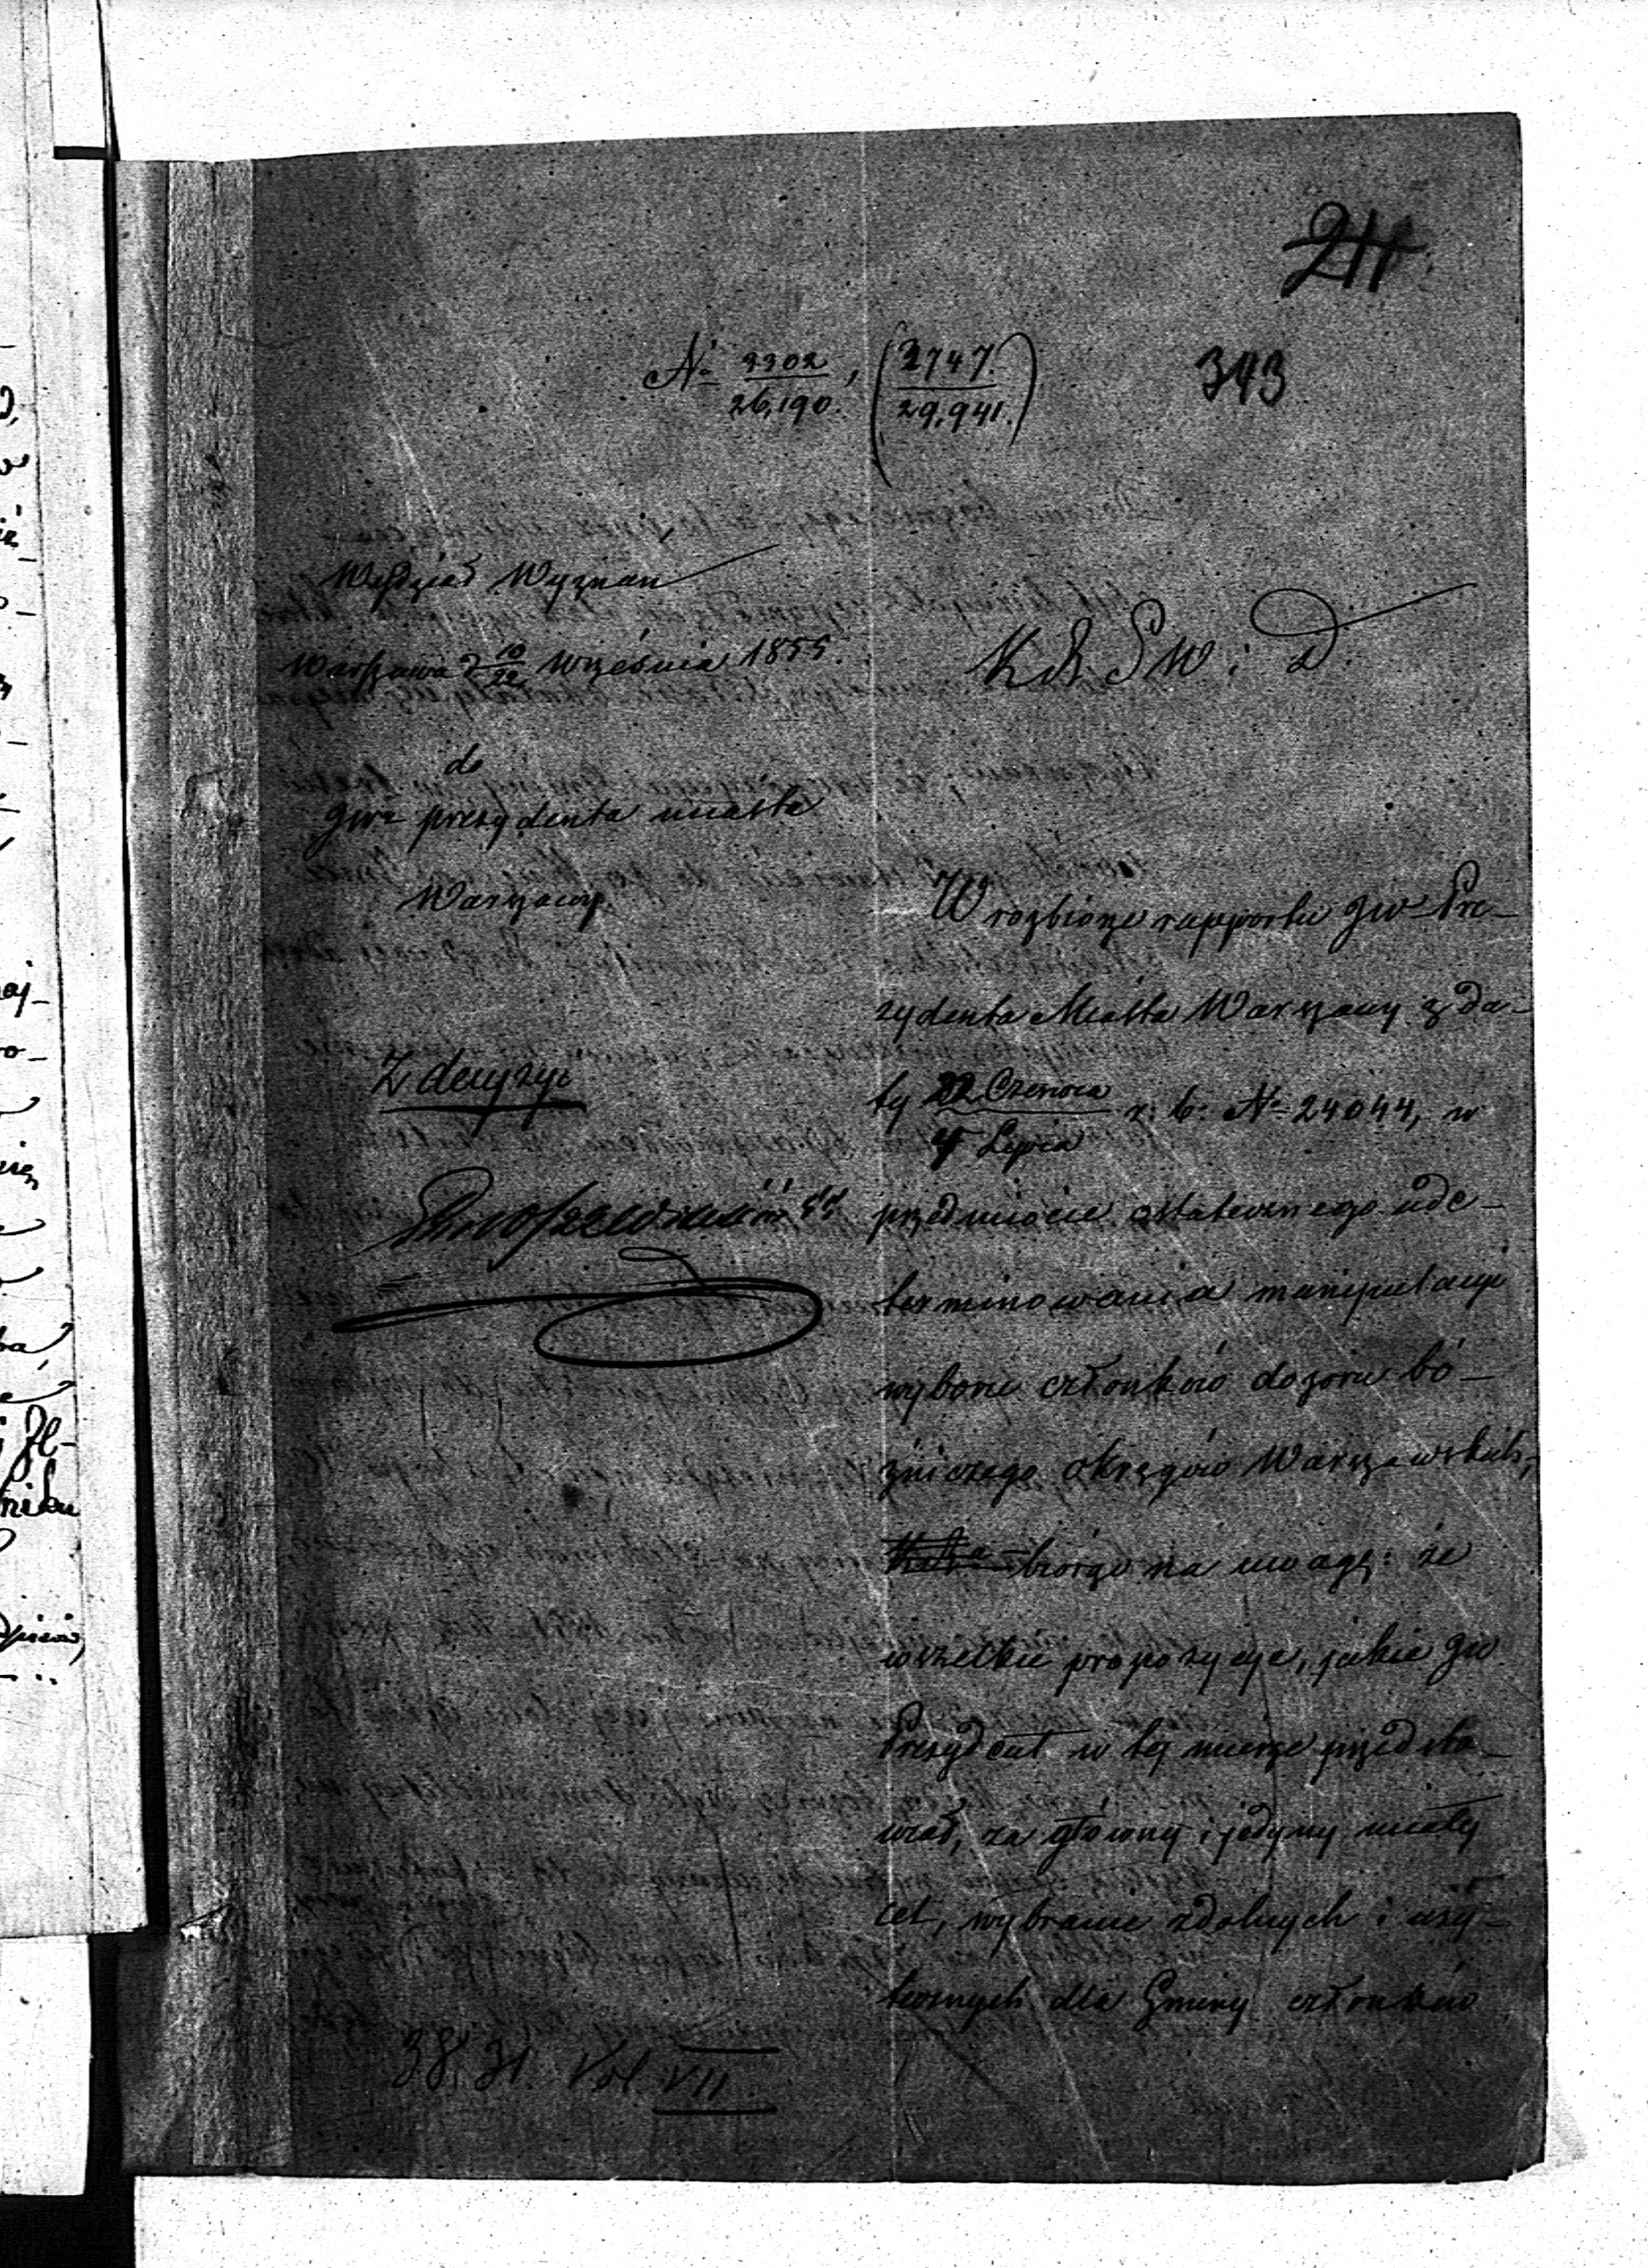 211
343
№ 3302/26,190. , (2747./29,941.)
Wydział Wyznań
Warszawa d 10/22 Września 1855.
do
JWo prezydenta miasta
Warszawy.
Z decyzyi
K R S W i D.
W rozbiorze rapportu JW Pre-
zydenta Miasta Warszawy z da-
ty 22 Czerwca / 4 Lipca r: b: № 24044, w
przedmiocie ostatecznego ude-
terminowania manipulacyi
wyboru członków dozoru bó-
źniczego okręgów Warszawskich,
biorąc na uwagę: że
wszelkie propozycye, jakie JW.
Prezydent w tej mierze przedsta-
wiał, za główny i jedyny miały
cel, wybranie zdolnych i uży-
tecznych dla Gminy członków
38.31. Vol VII